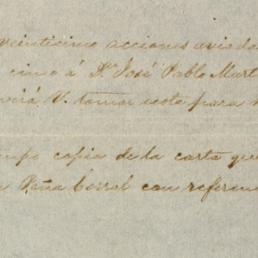 veinticinco acciones avieda
cinco á Dn José Pablo Mart
virá V. tomar nota para
copia de la carta que
Peña Corral con referen